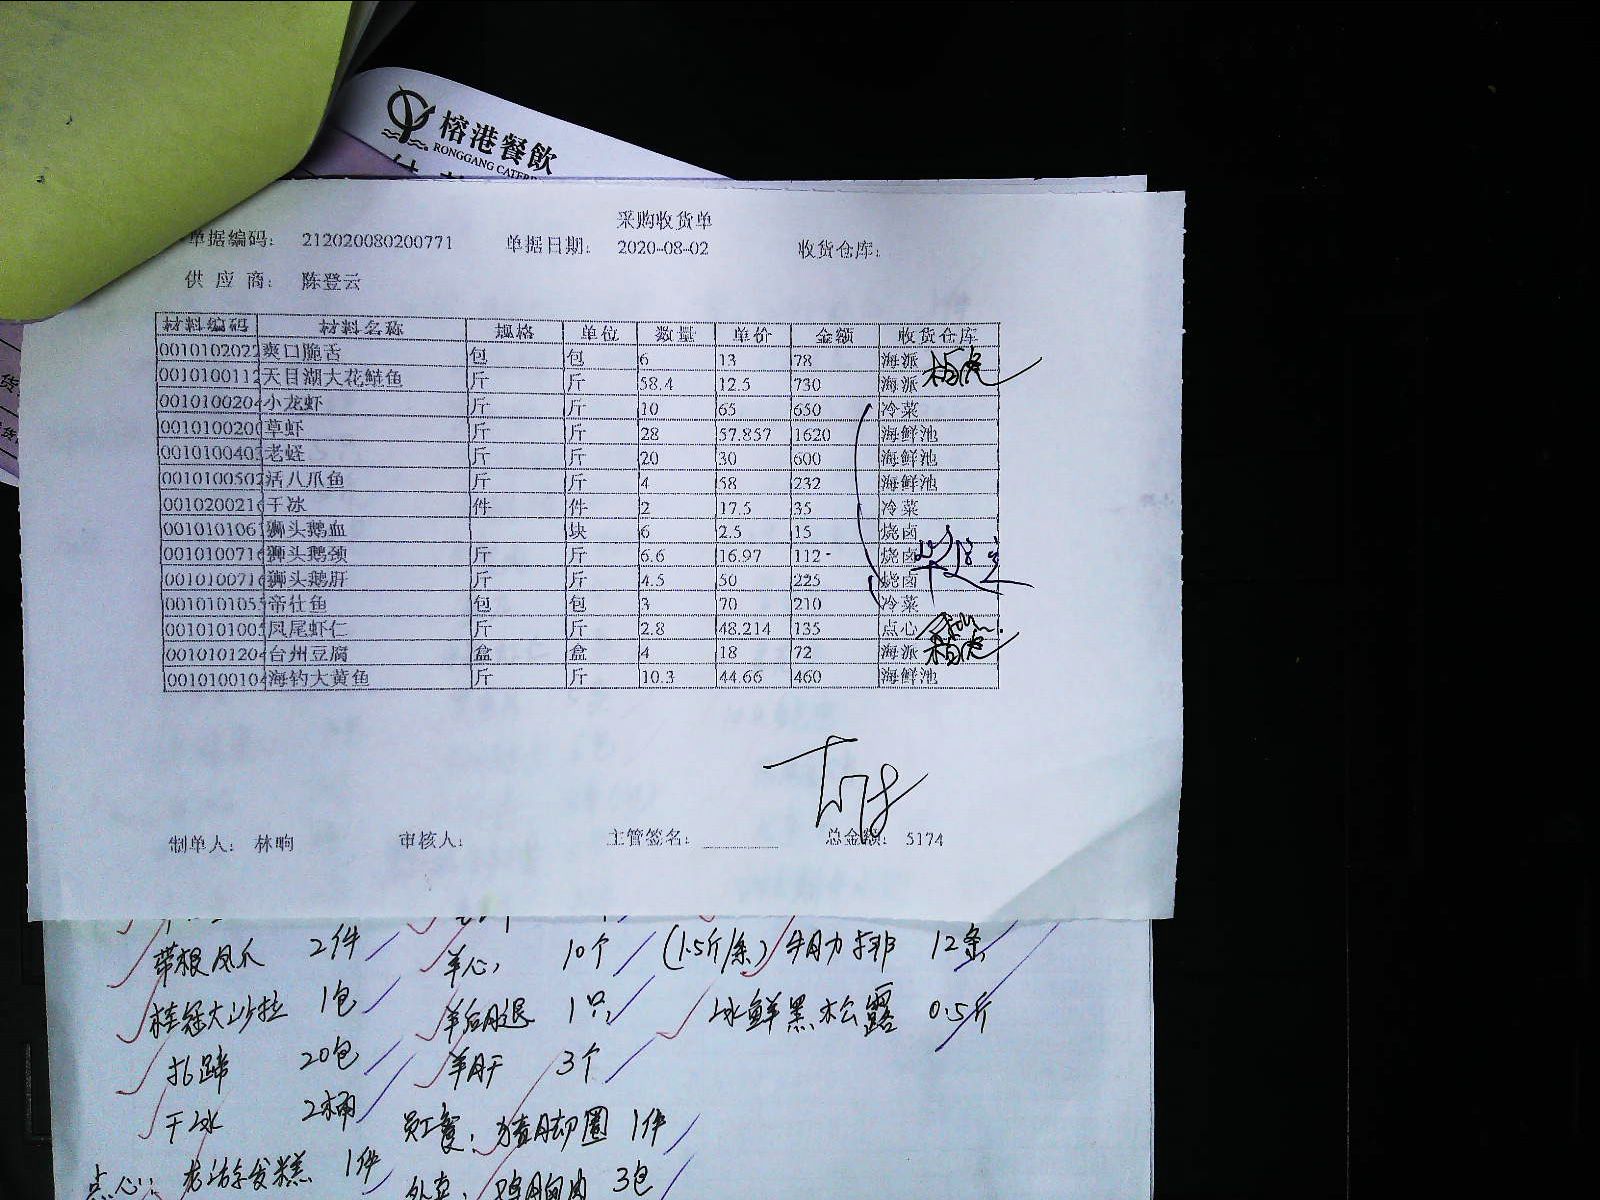 榕港餐飲
RONGGANG CATER
采购收货单
单据编码： 212020080200771 单据日期： 2020-08-02 收货仓库：
供 应 商： 陈登云
材料编码 材料名称 规格 单位 数量 单价 金额 收货仓库
0010102022 爽口脆舌 包 包 6 13 78 海派
0010100112 天目湖大花鲢鱼 斤 斤 58.4 12.5 730 海派
001010020 小龙虾 斤 斤 10 65 650 冷菜
0010100200 草虾 斤 斤 28 57.857 1620 海鲜池
0010100403 老蛏 斤 斤 20 30 600 海鲜池
0010100502 活八爪鱼 斤 斤 4 58 232 海鲜池
001020021 干冰 件 件 2 17.5 35 冷菜
001010106 狮头鹅血 块 6 2.5 15 烧卤
001010071 狮头鹅颈 斤 斤 6.6 16.97 112 烧卤
001010071 狮头鹅肝 斤 斤 4.5 50 225 烧卤
001010105 帝仕鱼 包 包 3 70 210 冷菜
001010100 凤尾虾仁 斤 斤 2.8 48.214 135 点心
001010120 台州豆腐 盒 盒 4 18 72 海派
001010010 海钓大黄鱼 斤 斤 10.3 44.66 460 海鲜池
制单人： 林晌 审核人： 主管签名： 总金额： 5174
带根凤爪 2件 羊心 10个 (1.5斤/条) 牛肋排 12条
桂冠大沙拉 1包 羊后腿 1只 冰鲜黑松露 0.5斤
扒蹄 20包 羊肝 3个
干冰 2桶 员工餐： 猪脚圈 1件
点心： 老法字发糕 1件 外卖： 鸡胸肉 3包